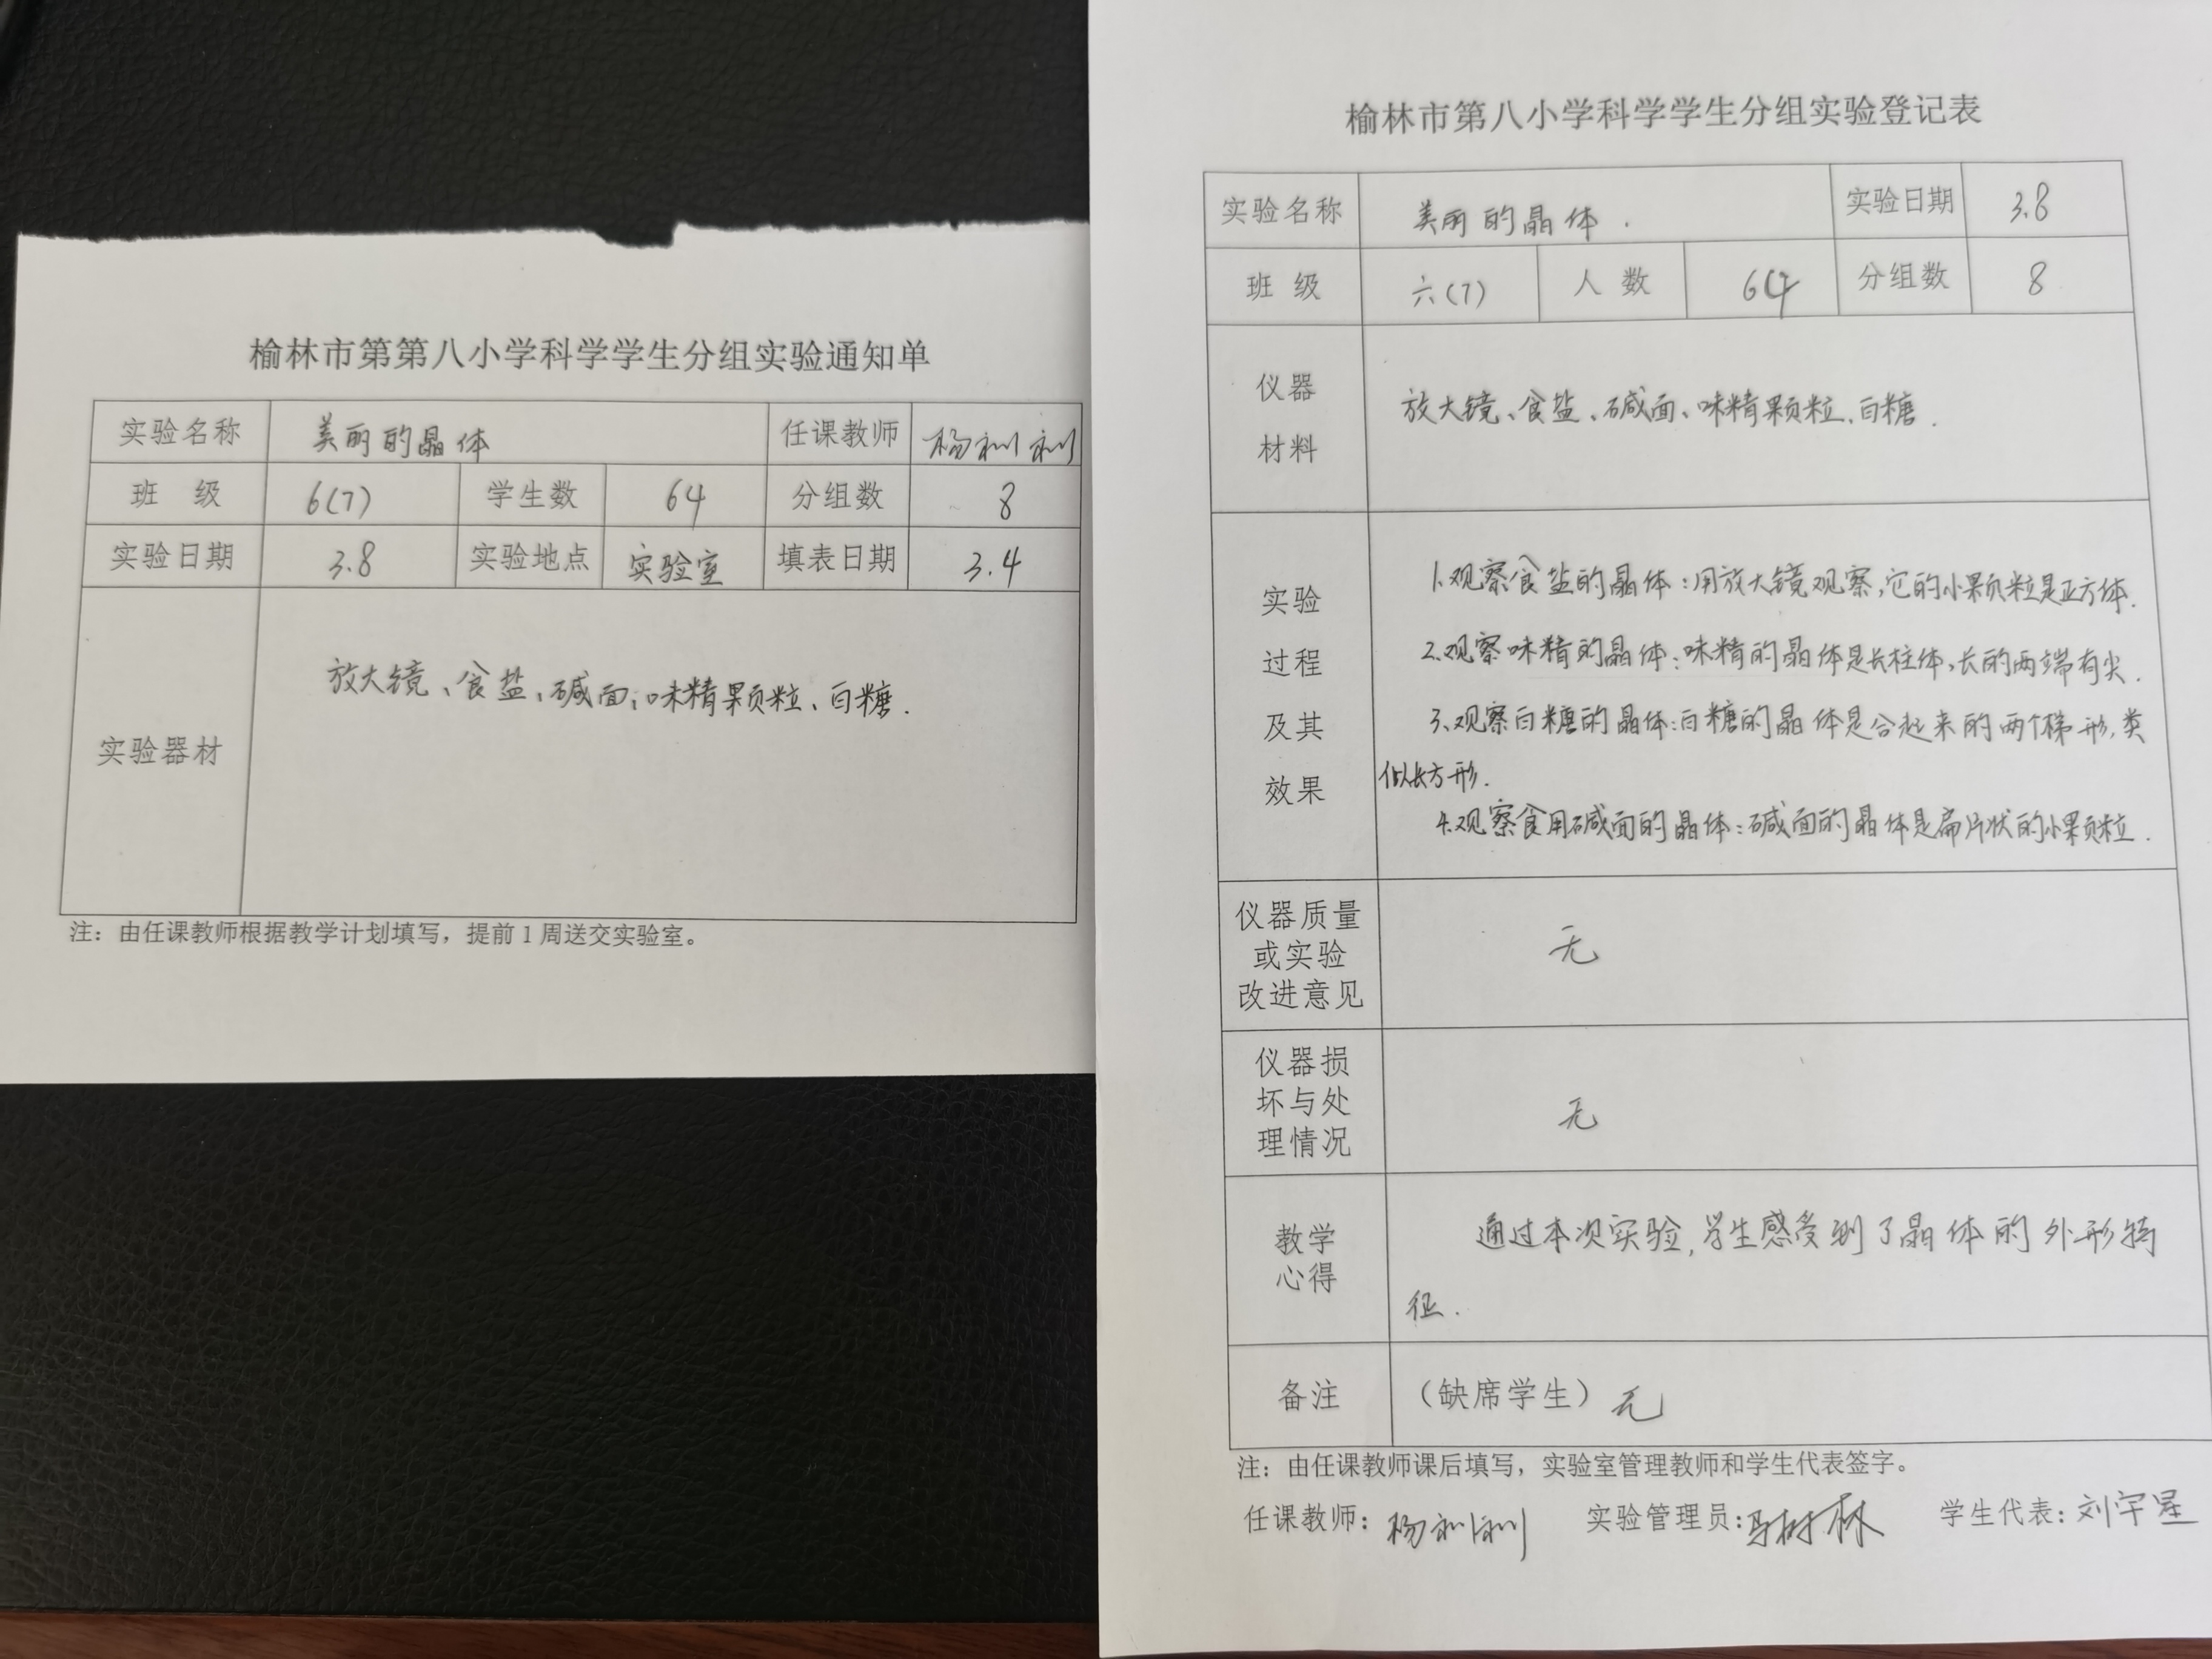 榆林市第第八小学科学学生分组实验通知单
实验名称 美丽的晶体 任课教师 杨利利
班 级 6(7) 学生数 64 分组数 8
实验日期 3.8 实验地点 实验室 填表日期 3.4
实验器材 放大镜、食盐、碱面、味精颗粒、白糖.
注：由任课教师根据教学计划填写，提前1周送交实验室。
榆林市第八小学科学学生分组实验登记表
实验名称 美丽的晶体. 实验日期 3.8
班 级 六(7) 人 数 64 分组数 8
仪器
材料
放大镜、食盐、碱面、味精颗粒、白糖.
实验
过程
及其
效果
1.观察食盐的晶体:用放大镜观察,它的小颗粒是正方体.
2.观察味精的晶体:味精的晶体是长柱体,长的两端有尖.
3.观察白糖的晶体:白糖的晶体是合起来的两个梯形,类
似长方形.
4.观察食用碱面的晶体:碱面的晶体是扁片状的小颗粒.
仪器质量
或实验
改进意见
无
仪器损
坏与处
理情况
无
教学
心得
通过本次实验,学生感受到了晶体的外形特
征.
备注 （缺席学生）无
注：由任课教师课后填写，实验室管理教师和学生代表签字。
任课教师：杨利利 实验管理员：马树林 学生代表：刘宇星